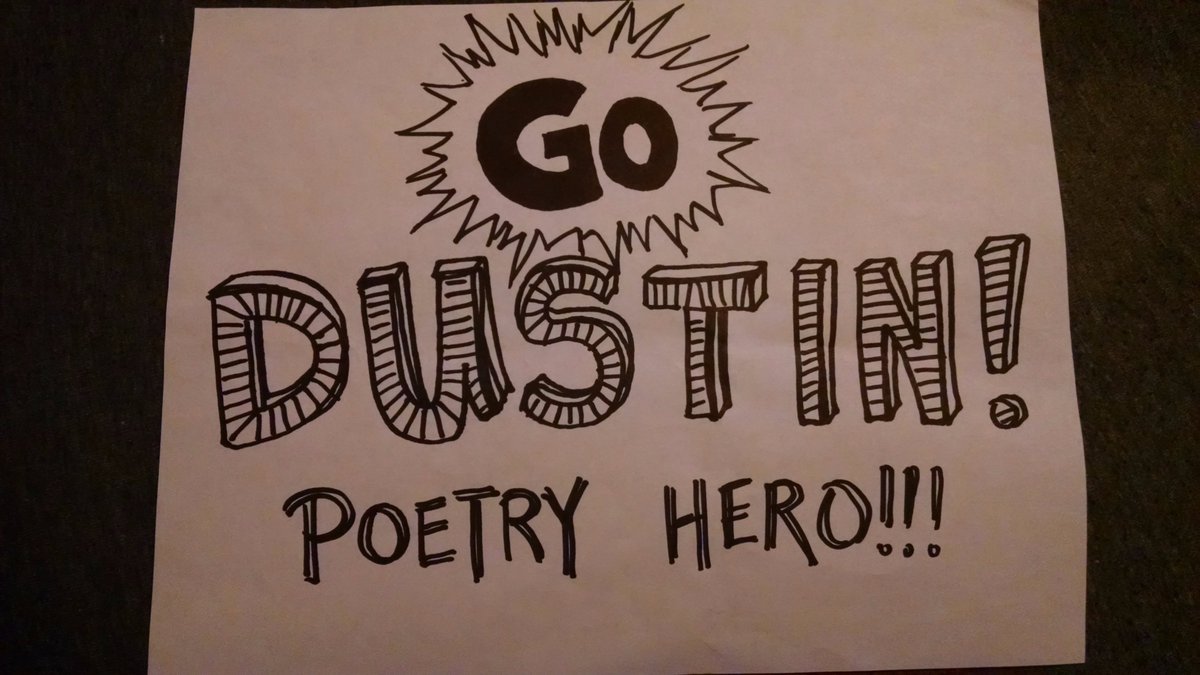 GO
DUSTIN!
POETRY HERO!!!